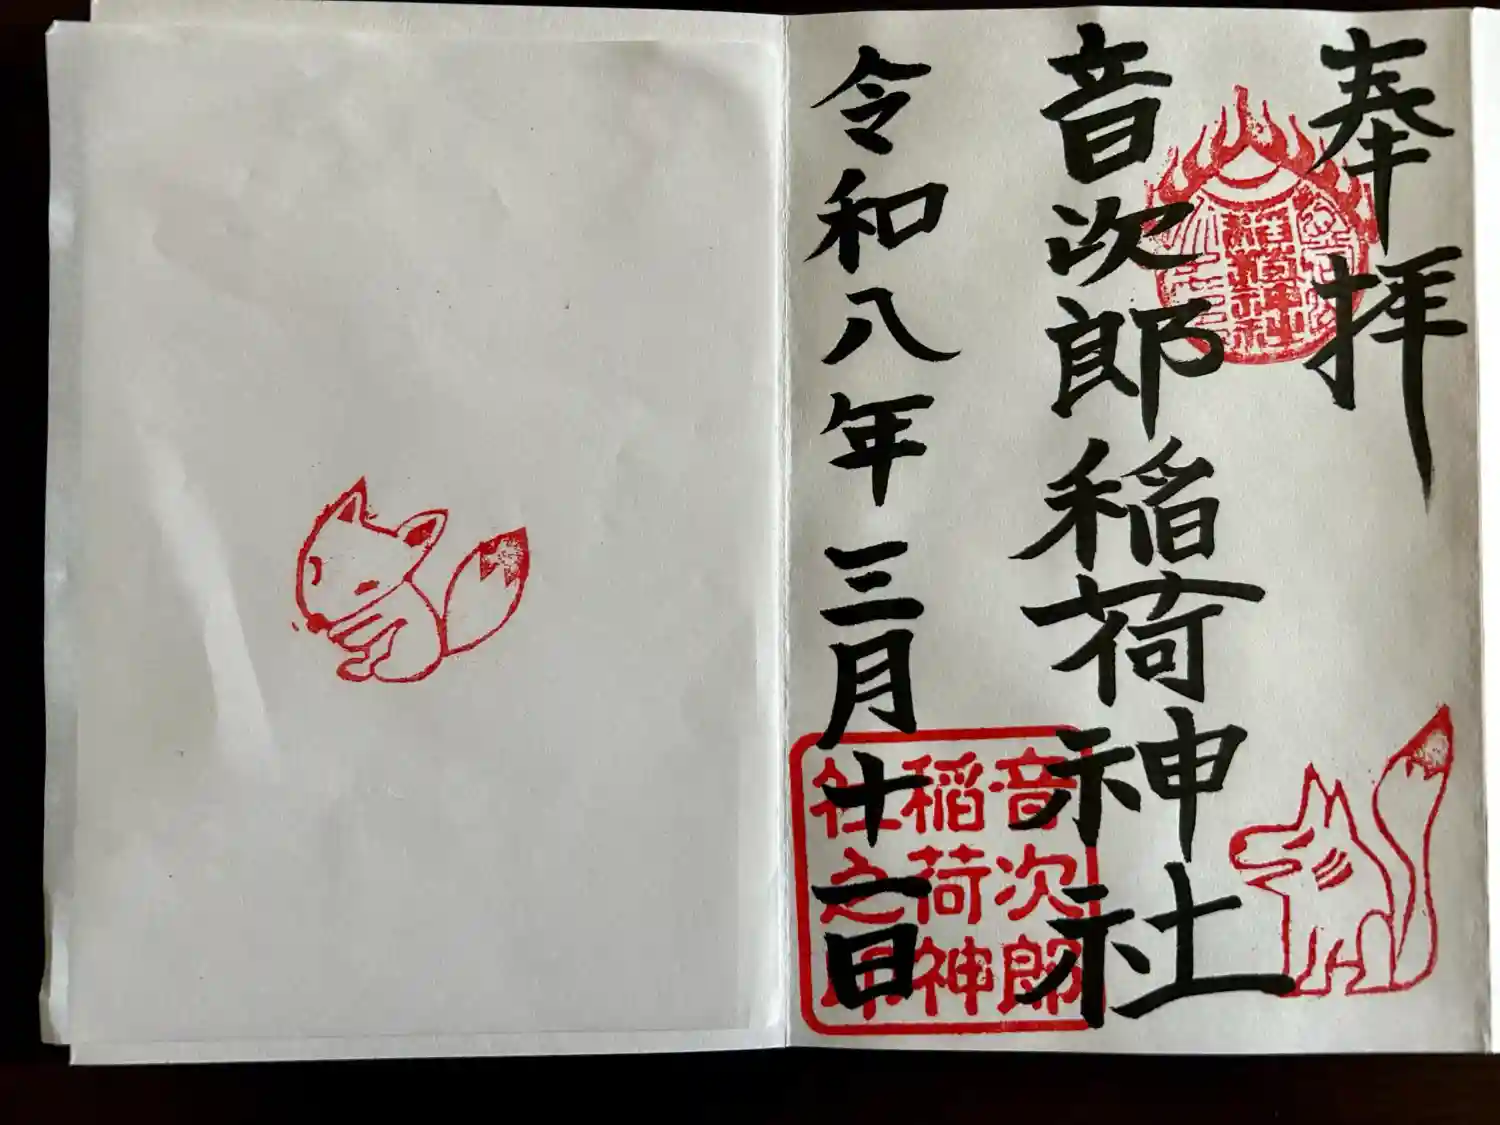 奉拝
音次郎稲荷神社
令和八年三月十一日
音次郎
稲荷神
社之印
稲荷神社